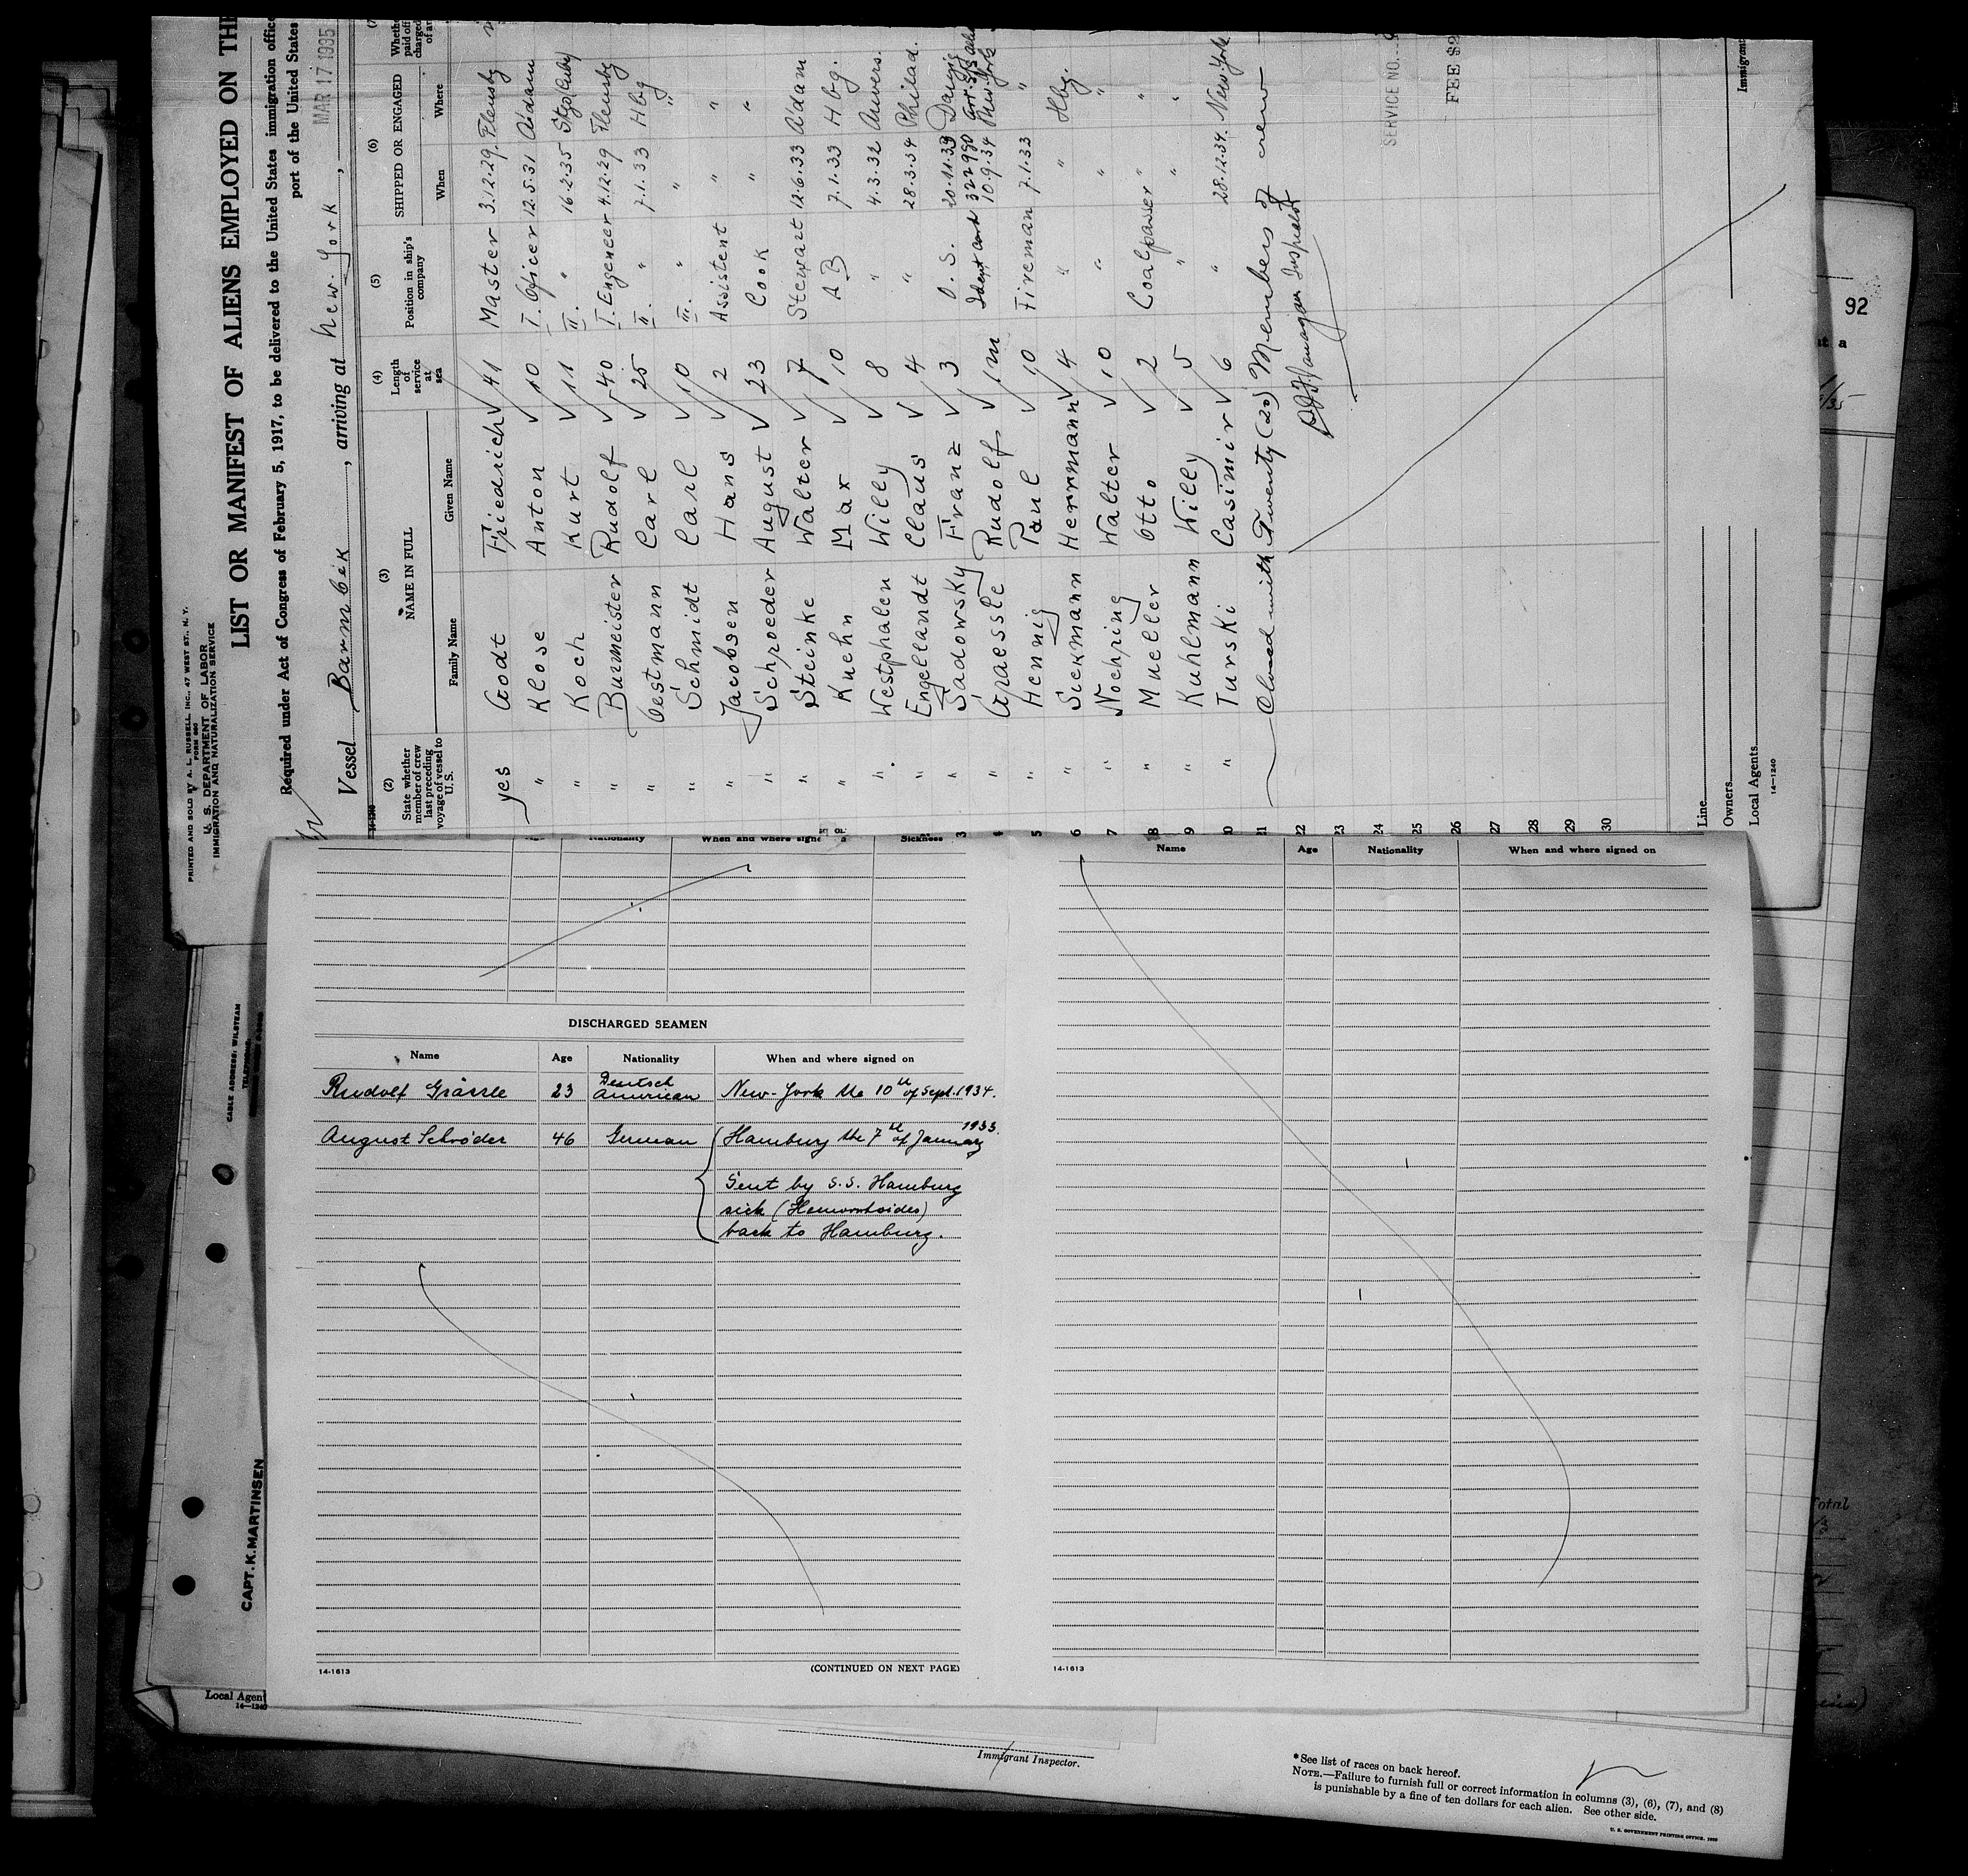 PRINTED AND SOLD BY A. L. RUSSELL, INC., 47 WEST ST., N. Y.
FORM 680
U. S. DEPARTMENT OF LABOR
IMMIGRATION AND NATURALIZATION SERVICE
LIST OR MANIFEST OF ALIENS EMPLOYED ON THE
Required under Act of Congress of February 5, 1917, to be delivered to the United States immigration offic
port of the United States
Vessel Barmbek, arriving at New-York, MAR 17 1935
(2) (3) (4) (5) (6)
State whether member of crew last preceding voyage of vessel to U. S.
NAME IN FULL
Family Name Given Name
Length of service at sea
Position in ship's company
SHIPPED OR ENGAGED
When Where
yes Godt Friedrich 41 Master 3.12.29. Flensbg
" Klose Anton 10 I. Officer 12.5.31 A'dam
" Koch Kurt 11 II. " 16.2.35
" Burmeister Rudolf 40 I. Engeneer 4.12.29 Flensbg
" Oestmann Carl 25 II. " 7.1.33 Hbg
" Schmidt Carl 10 III. " " "
" Jacobsen Hans 2 Assistent " "
" Schroeder August 23 Cook " "
" Steinke Walter 7 Stewart 12.6.33 A'dam
" Kuehn Max 10 AB 7.1.33 Hbg.
" Westphalen Willy 8 " 4.3.32 Anvers.
" Engellandt Claus 4 " 28.3.34 Philad.
" Sadowsky Franz 3 O. S. 20.11.33 Danzig
" Graessle Rudolf 1m Ident card 322980 10.9.34 New-York
" Hennig Paul 10 Fireman 7.1.33 "
" Sieckmann Herrmann 4 " " Hbg.
" Nochring Walter 10 " " "
" Mueller Otto 2 Coalpasser " "
" Kuhlmann Willy 5 " " "
" Turski Casimir 6 " 28.12.34. New York
Closed with Twenty (20) Members of crew
Inspector
3
4
5
6
7
8
9
10
21
22
23
24
25
26
27
28
29
30
SERVICE NO.
FEE $2
Line
Owners
Local Agents
14-1240
Immigrant
92
Nationality When and where signe Sickness
Name Age Nationality When and where signed on
DISCHARGED SEAMEN
Name Age Nationality When and where signed on
Rudolf Grässle 23 Deutsch American New-York the 10th of Sept. 1934.
August Schröder 46 German Hamburg the 7th of January 1933.
Sent by S.S. Hamburg
sick (Hemorrhoides)
back to Hamburg.
14-1613 (CONTINUED ON NEXT PAGE)
14-1613
CABLE ADDRESS: WILSTEAM
CAPT. K. MARTINSEN
Local Agent
14-1240
Immigrant Inspector.
* See list of races on back hereof.
NOTE.—Failure to furnish full or correct information in columns (3), (6), (7), and (8)
is punishable by a fine of ten dollars for each alien. See other side.
U. S. GOVERNMENT PRINTING OFFICE